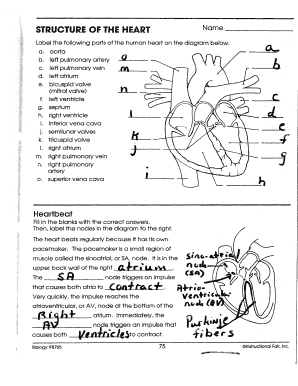 STRUCTURE OF THE HEART
Name
Label the following parts of the human heart on the diagram below.
a. aorta
b. left pulmonary artery
c. left pulmonary vein
d. left atrium
e. bicuspid valve
(mitral valve)
f. left ventricle
g. septum
h. right ventricle
i. inferior vena cava
j. semilunar valves
k. tricuspid valve
l. right atrium
m. right pulmonary vein
n. right pulmonary
artery
o. superior vena cava
o
m
n
l
k
j
i
a
b
c
d
e
f
g
h
Heartbeat
Fill in the blanks with the correct answers.
Then, label the nodes in the diagram to the right.
The heart beats regularly because it has its own
pacemaker. The pacemaker is a small region of
muscle called the sinoatrial, or SA, node. It is in the
upper back wall of the right atrium.
The SA node triggers an impulse
that causes both atria to contract.
Very quickly, the impulse reaches the
atrioventricular, or AV, node at the bottom of the
Right atrium. Immediately, the
AV node triggers an impulse that
causes both Ventricles to contract.
Sino-atrial
node
(SA)
Atrio-
Ventricular
node (AV)
Purkinje
fibers
Biology IF8765
75
©Instructional Fair, Inc.